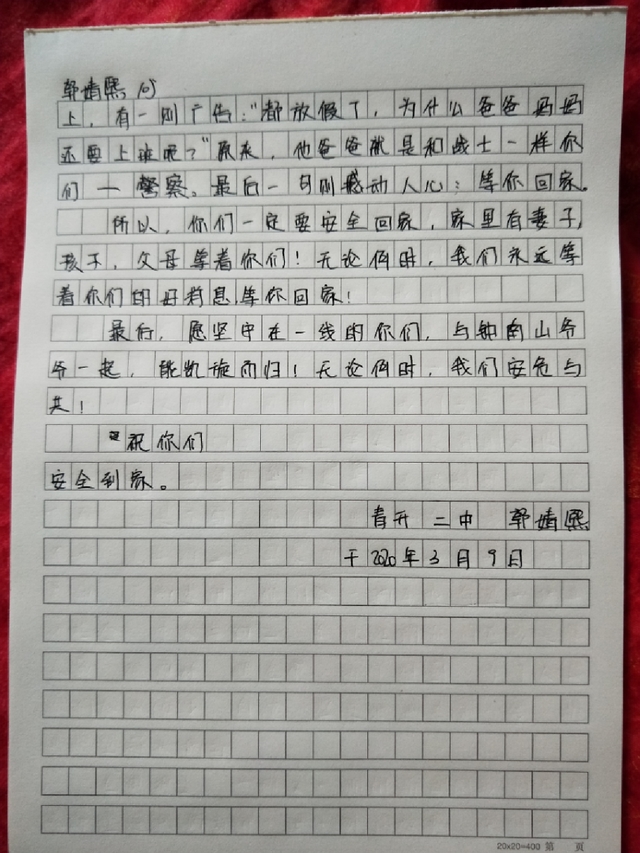 郭婧熙
上，有一则广告："都放假了，为什么爸爸妈妈
还要上班呢？"原来，他爸爸就是和战士一样你
们一警察。最后一句则感动人心：等你回家。
所以，你们一定要安全回家，家里有妻子，
孩子，父母等着你们！无论何时，我们永远等
着你们的好消息，等你回家！
最后，愿坚守在一线的你们，与钟南山爷
爷一起，能凯旋而归！无论何时，我们安危与
共！
祝你们
安全到家。
青开二中 郭婧熙
于2020年3月9日
20×20=400 第 页